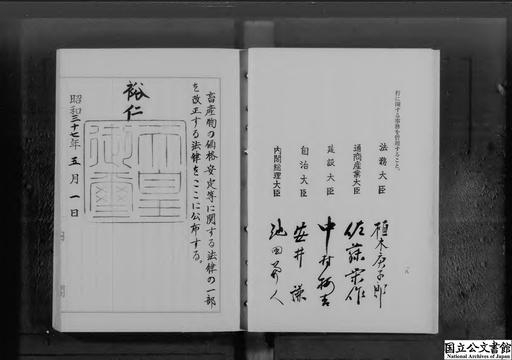 行に関する事務を管理すること。
法務大臣 植木庚子郎
通商産業大臣 佐藤栄作
建設大臣 中村梅吉
自治大臣 安井謙
内閣総理大臣 池田勇人
畜産物の価格安定等に関する法律の一部
を改正する法律をここに公布する。
裕仁
天皇御璽
昭和三十七年五月一日
国立公文書館
National Archives of Japan